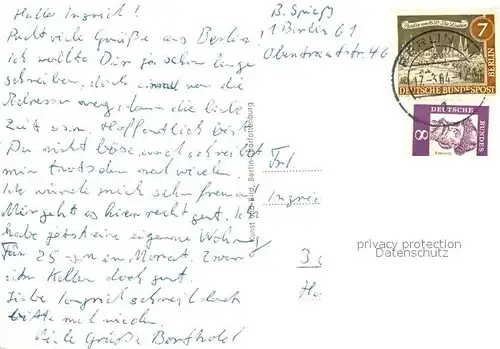 Hallo Ingrid!
Recht viele Grüße aus Berlin,
ich wollte Dir ja schon lange
schreiben, doch einmal war die
Adresse weg, dann die liebe
Zeit usw. Hoffentlich bist
Du nicht böse, und schreibst
mir trotzdem mal wieder.
Ich würde mich sehr freuen!
Mir geht es hier recht gut. Ich
habe jetzt eine eigene Wohnung
Für 25 DM im Monat. Zwar
ein Keller doch gut.
Liebe Ingrid schreib doch
bitte mal wieder.
Viele Grüße Berthold
Kunst und Bild, Berlin-Charlottenburg
B. Spieß
1 Berlin 61
Obentrautstr. 46
Frl.
Ingrid
3
Ha
7
BERLIN
DEUTSCHE BUNDESPOST
BERLIN
17.3.64
DEUTSCHE
BUNDES
8
privacy protection
Datenschutz